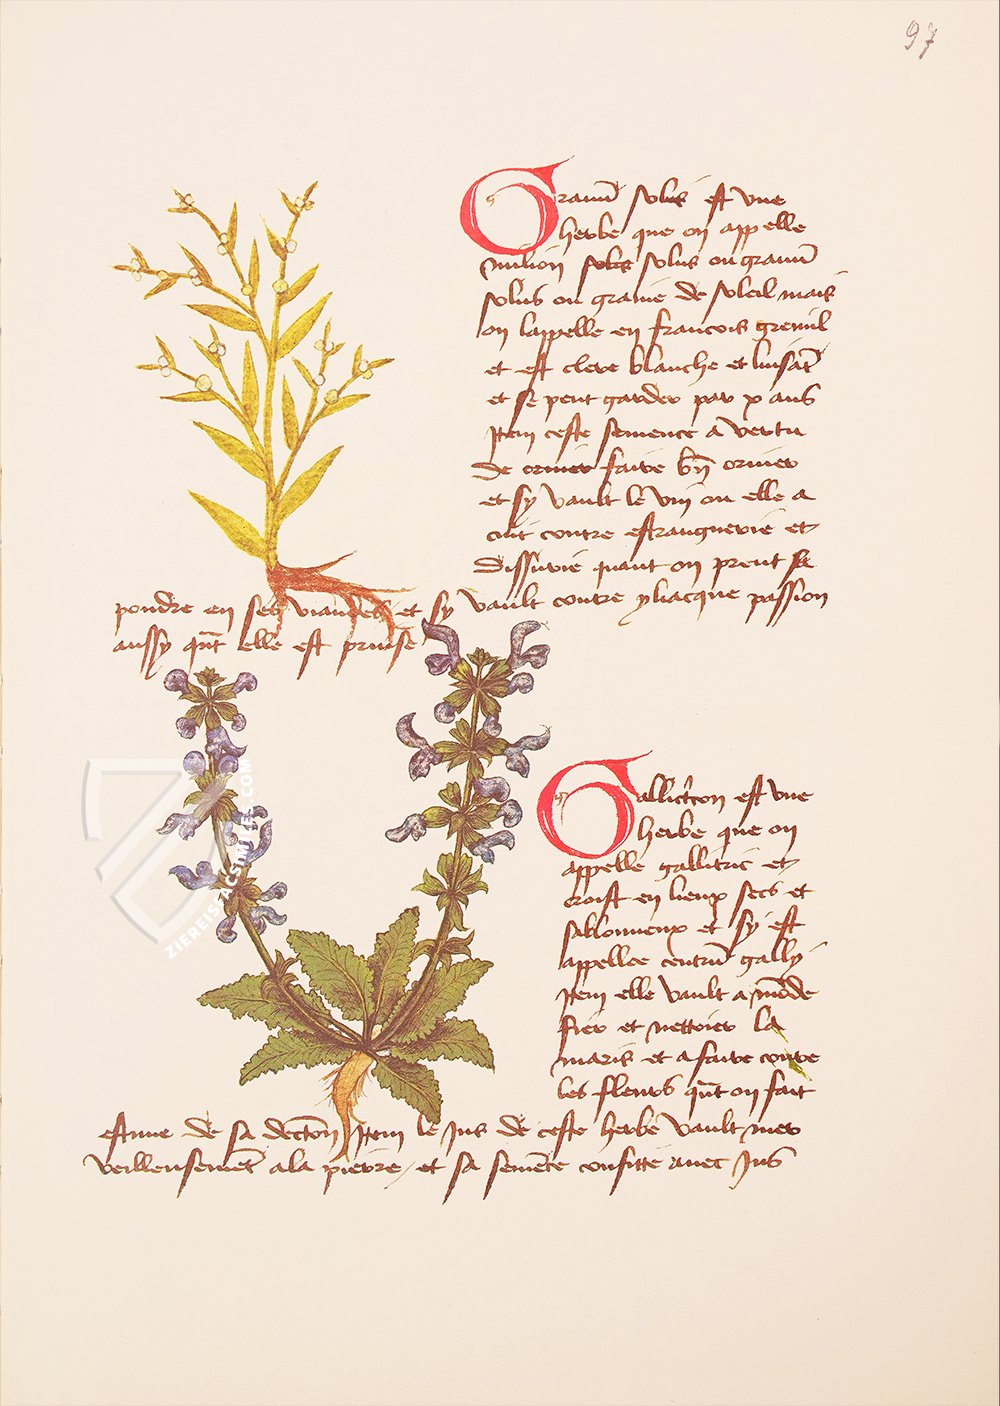 97
Granu᷉ solis est vne
herbe que on appelle
milion solis solus ou granu᷉
solus ou graine de soleil mais
on lappelle en francois gremil
et est clere blanche et luisa᷉t
et se peut garder par x ans
Item ceste semence a vertu
de oriner faire bn᷉ oriner
et sy vault le vin ou elle a
cuit contre estrangurie et
dissurie quant on prent sa
pondre en ses viandes et sy vault contre yliacque passion
aussy qnt᷉ elle est prinse
Gallicitron est vne
herbe que on
appelle gallitric et
croist en lieux secs et
sablonneux et sy est
appellee centru᷉ gally
Item elle vault a mo᷉de
fier et nettoier la
maris et a faire contre
les fleurs qnt᷉ on fait
estuue de sa decction᷉ Item le jus de ceste herbe vault mer
veilleuseme᷉t a la pierre et sa seme᷉ce confitte auec jus
ZIEREIS FACSIMILES.COM